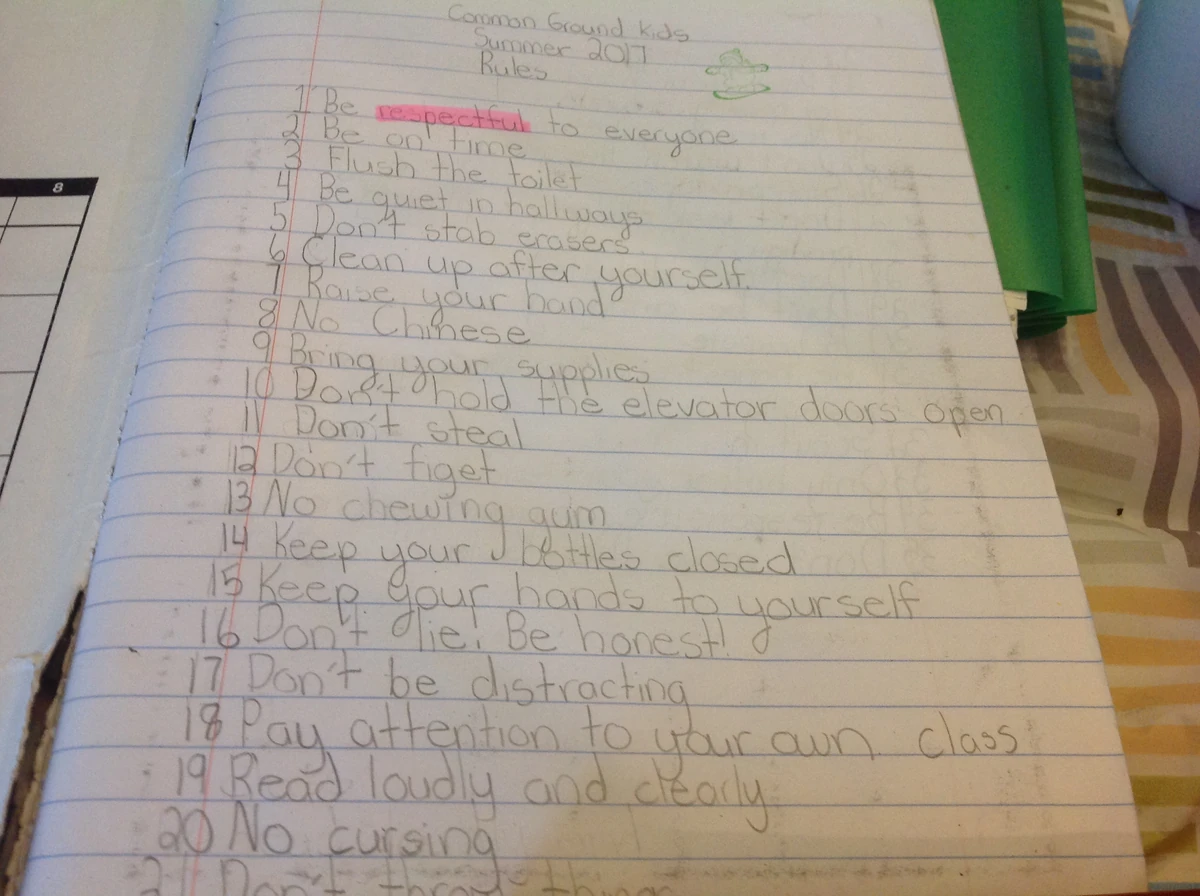 Common Ground Kids
Summer 2017
Rules
8
1 Be respectful to everyone
2 Be on time
3 Flush the toilet
4 Be quiet in hallways
5 Don't stab erasers
6 Clean up after yourself.
7 Raise your hand
8 No Chinese
9 Bring your supplies
10 Don't hold the elevator doors open
11 Don't steal
12 Don't figet
13 No chewing gum
14 Keep your bottles closed
15 Keep your hands to yourself
16 Don't lie! Be honest!
17 Don't be distracting
18 Pay attention to your own class
19 Read loudly and clearly
20 No cursing
21 Don't things